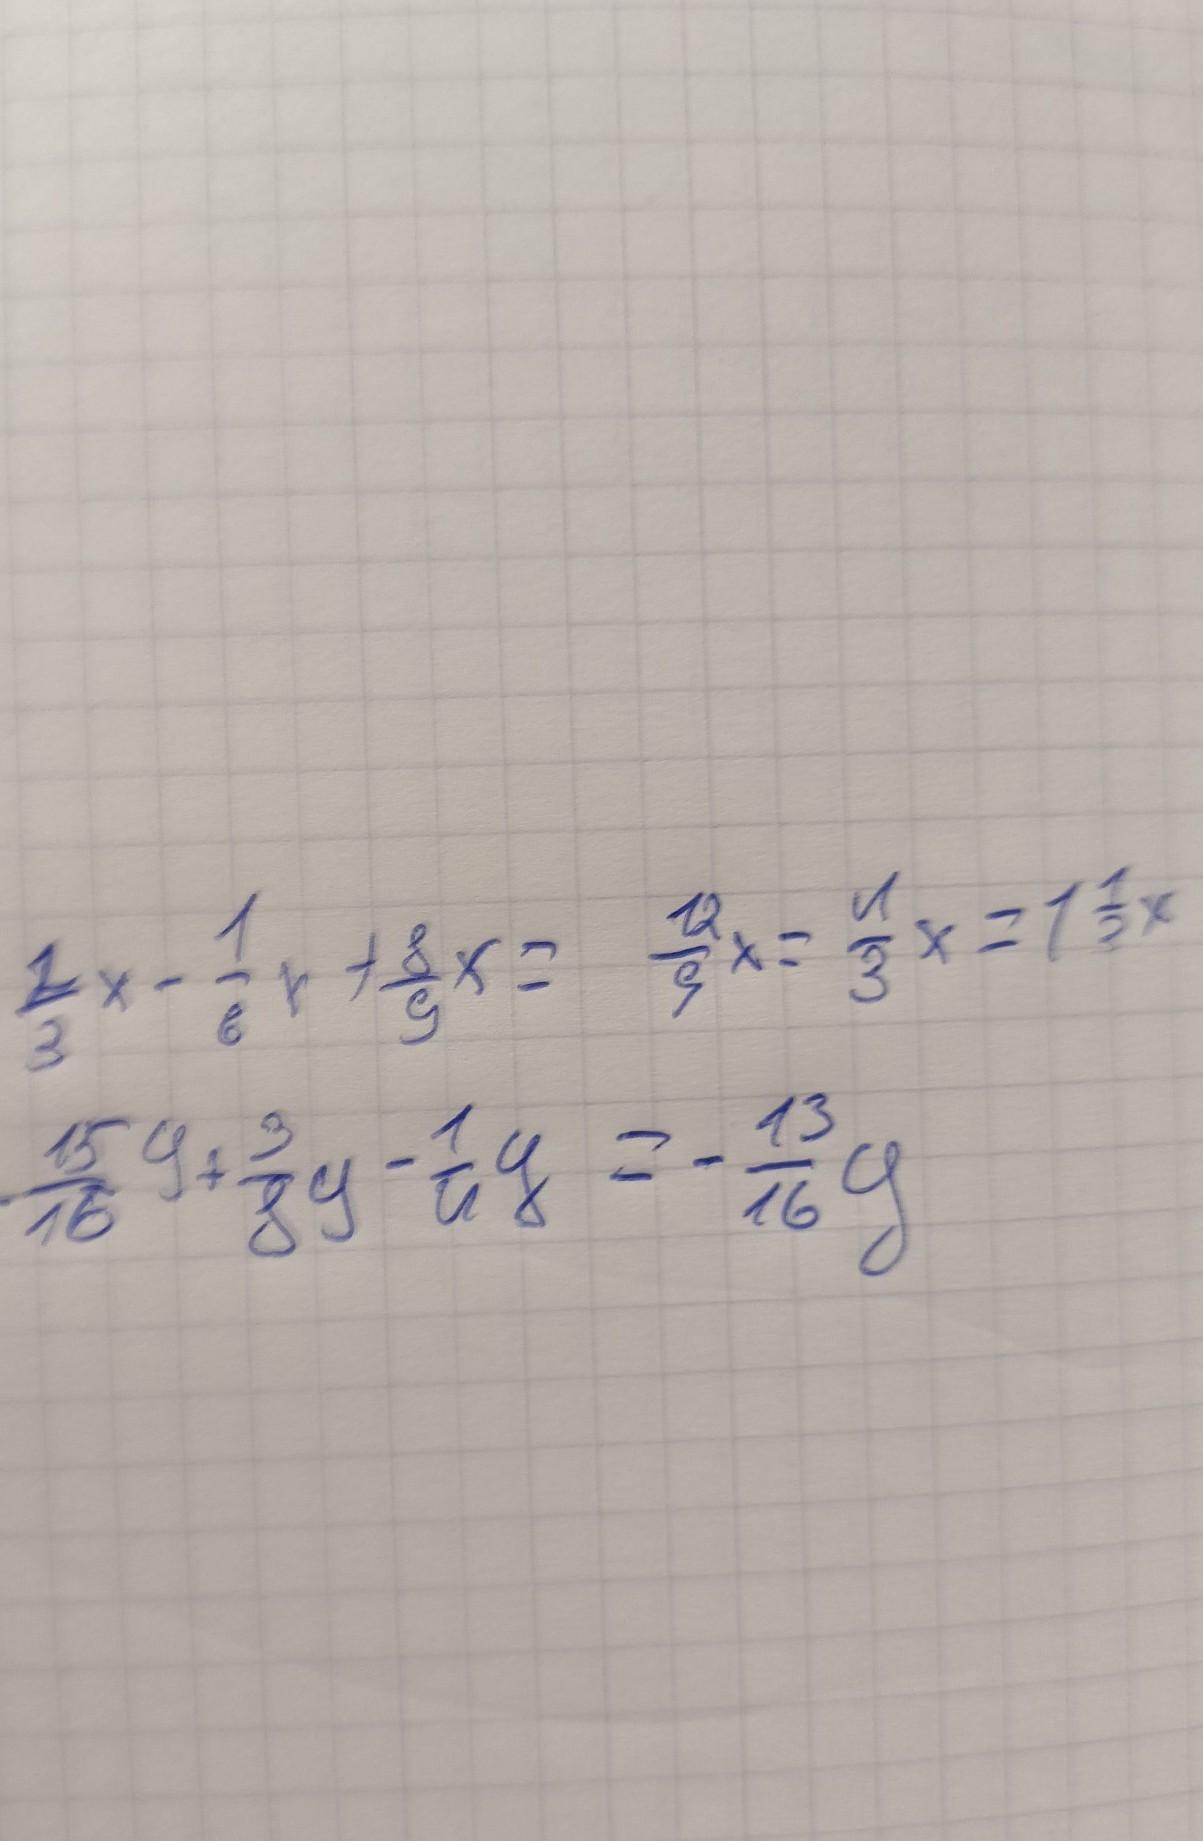 2/3 x - 1/6 x + 8/9 x = 12/9 x = 4/3 x = 1 1/3 x
- 15/16 y + 3/8 y - 1/4 y = - 13/16 y